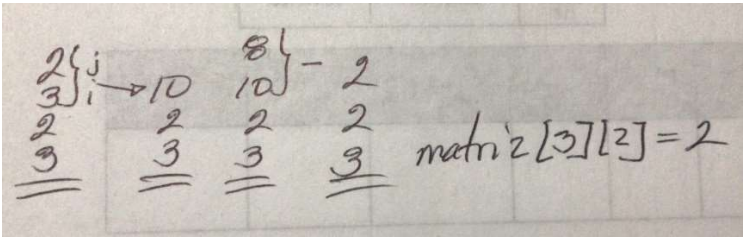 2 } j 8 }
3 } i → 10 10 } - 2
2 2 2 2
3 3 3 3 matriz[3][2]=2